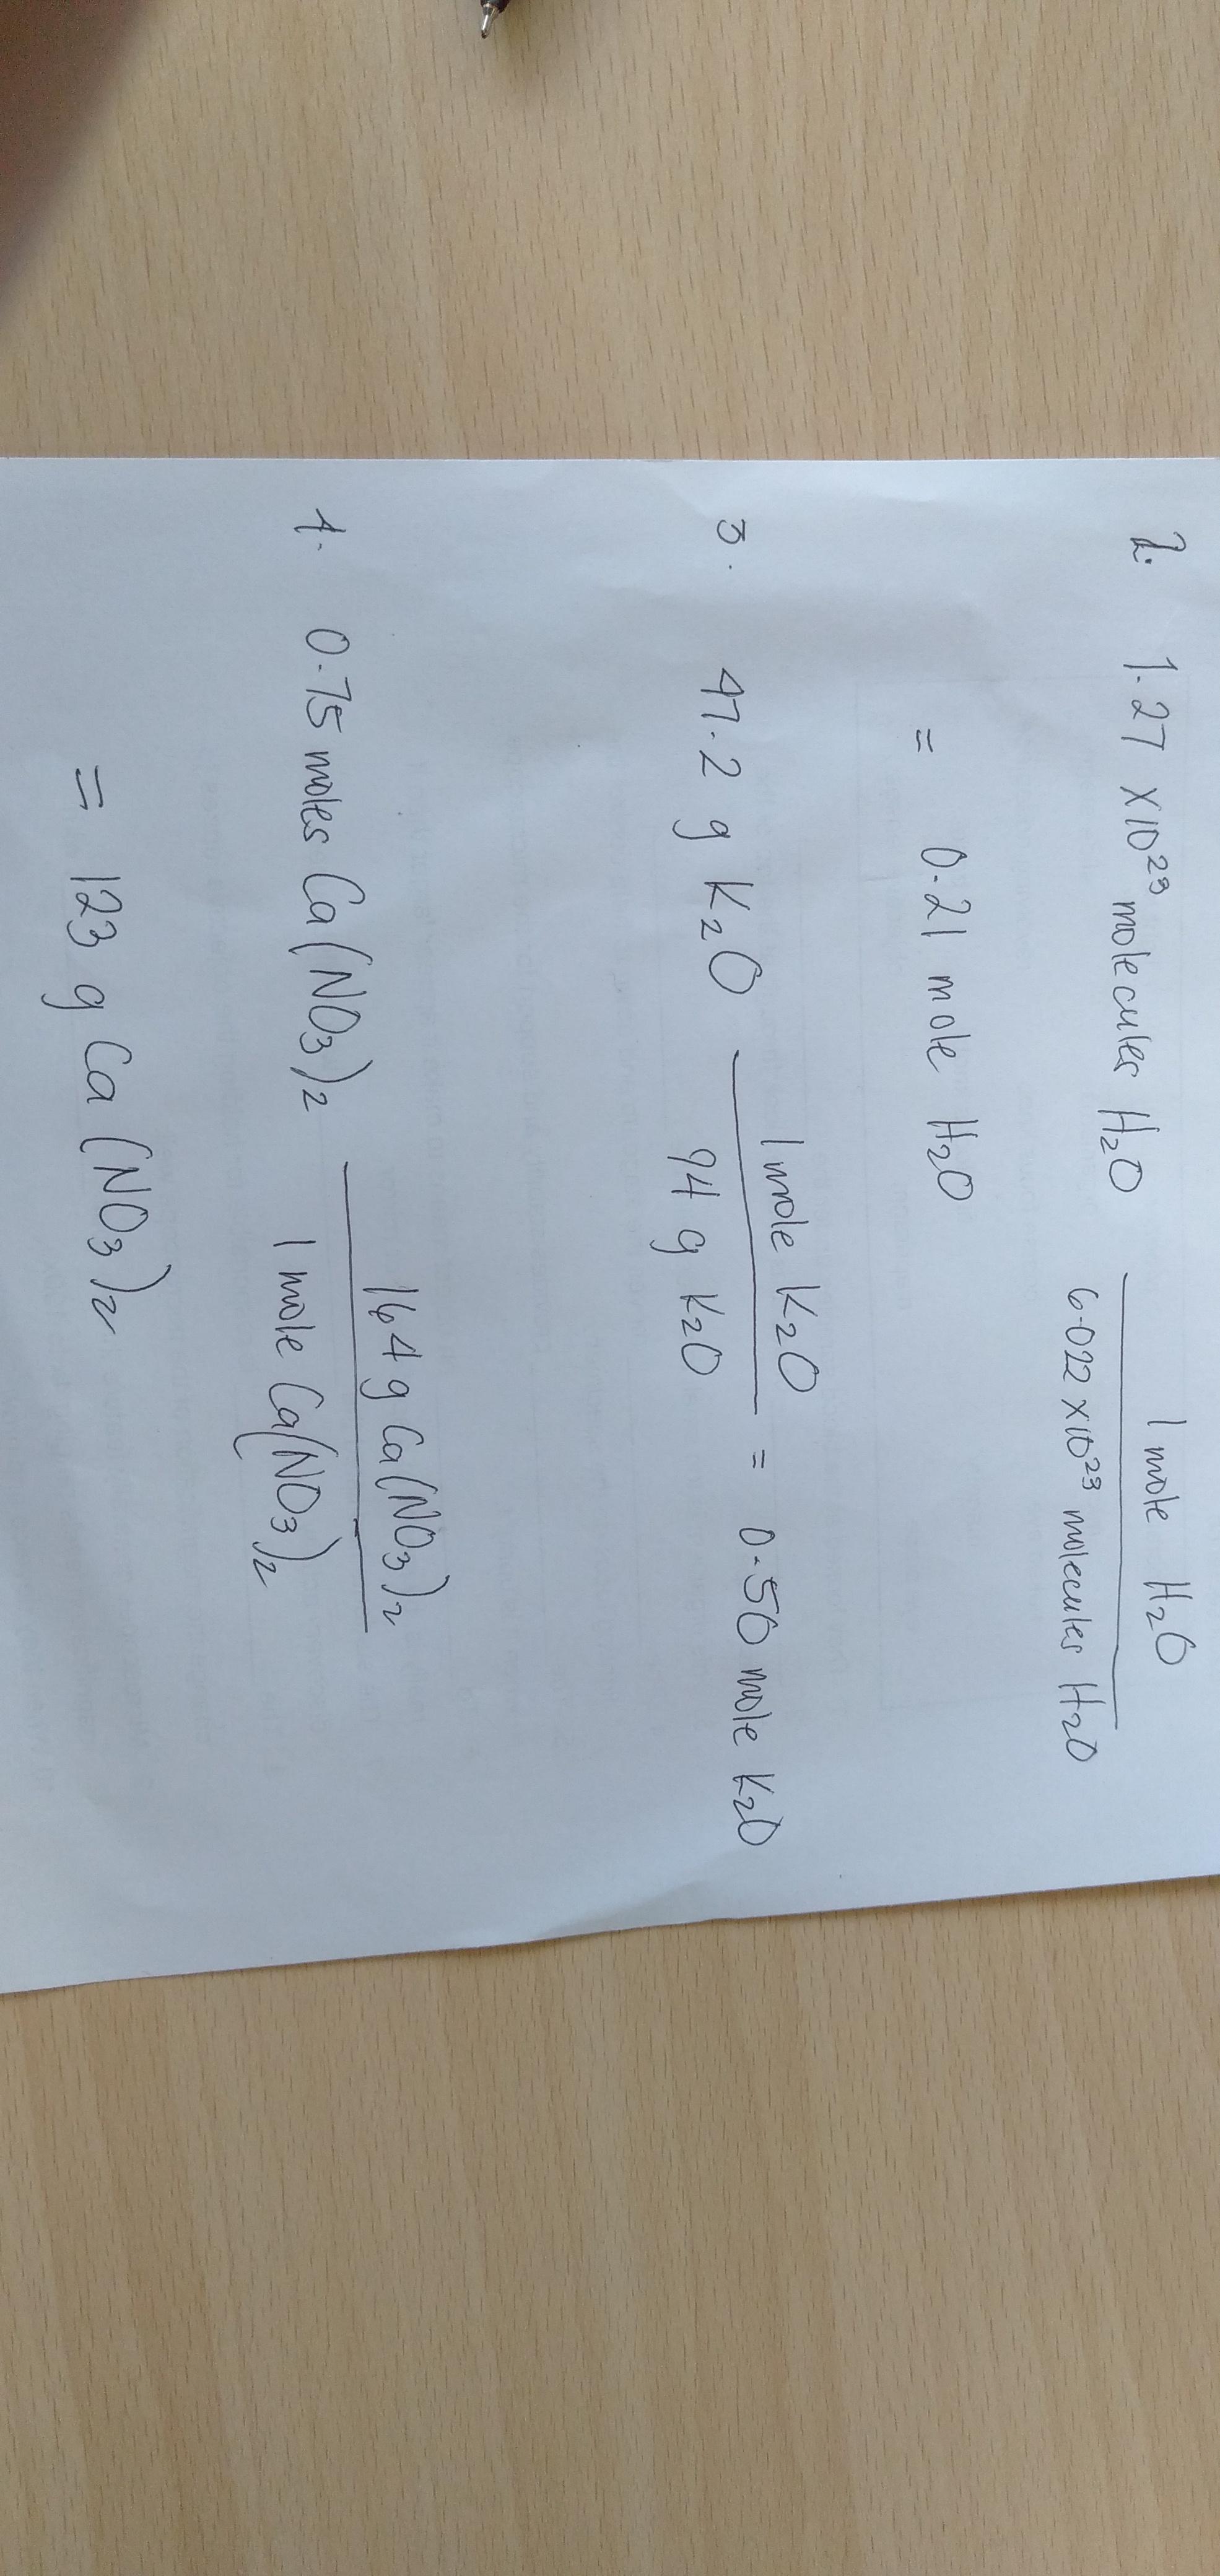 2. 1.27 ×10²³ molecules H₂O
1 mole H₂O
6.022 ×10²³ molecules H₂O
= 0.21 mole H₂O
3. 47.2 g K₂O
1 mole K₂O
94 g K₂O
= 0.50 mole K₂O
4. 0.75 moles Ca(NO₃)₂
164 g Ca(NO₃)₂
1 mole Ca(NO₃)₂
= 123 g Ca(NO₃)₂